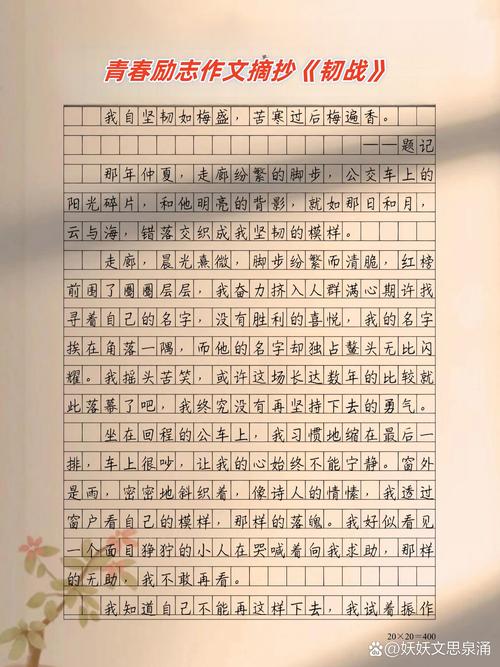 青春励志作文摘抄《韧战》
我自坚韧如梅盛，苦寒过后梅遍香。
——题记
那年仲夏，走廊纷繁的脚步，公交车上的
阳光碎片，和他明亮的背影，就如那日和月，
云与海，错落交织成我坚韧的模样。
走廊，晨光熹微，脚步纷繁而清脆，红榜
前围了圈圈层层，我奋力挤入人群满心期许找
寻着自己的名字，没有胜利的喜悦，我的名字
挨在角落一隅，而他的名字却独占鳌头无比闪
耀。我摇头苦笑，或许这场长达数年的比较就
此落幕了吧，我终究没有再坚持下去的勇气。
坐在回程的公车上，我习惯地缩在最后一
排，车上很吵，让我的心始终不能宁静。窗外
是雨，密密地斜织着，像诗人的情愫，我透过
窗户看自己的模样，那样的落魄。我好似看见
一个面目狰狞的小人在哭喊着向我求助，那样
的无助，我不敢再看。
我知道自己不能再这样下去，我试着振作
20×20=400
@妖妖文思泉涌